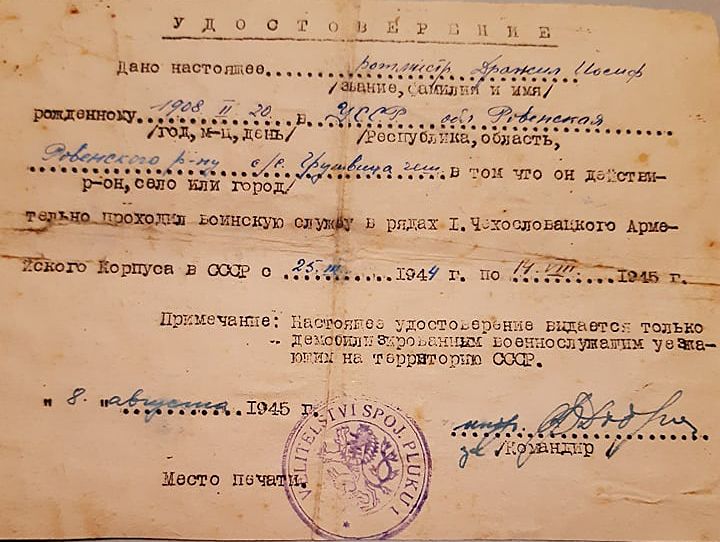 УДОСТОВЕРЕНИЕ
Дано настоящее ротмистр Дражил Иосиф
/звание, фамилия и имя/
рожденному 1908 II 20 в УССР обл Ровенская
/год, м-ц, день/ /Республика, область,
Ровенского р-ну с/с. Грушвица чеш. в том что он действи-
р-он, село или город/
тельно проходил воинскую службу в рядах I. Чехословацкого Арме-
йского Корпуса в СССР с 25. III. 1944 г. по 14. VIII. 1945 г.
Примечание: Настоящее удостоверение выдается только
демобилизированным военнослужащим уезжа-
ющим на территорию СССР.
" 8. " августа 1945 г.
за /Командир
Место печати.
VELITELSTVÍ SPOJ. PLUKU 1